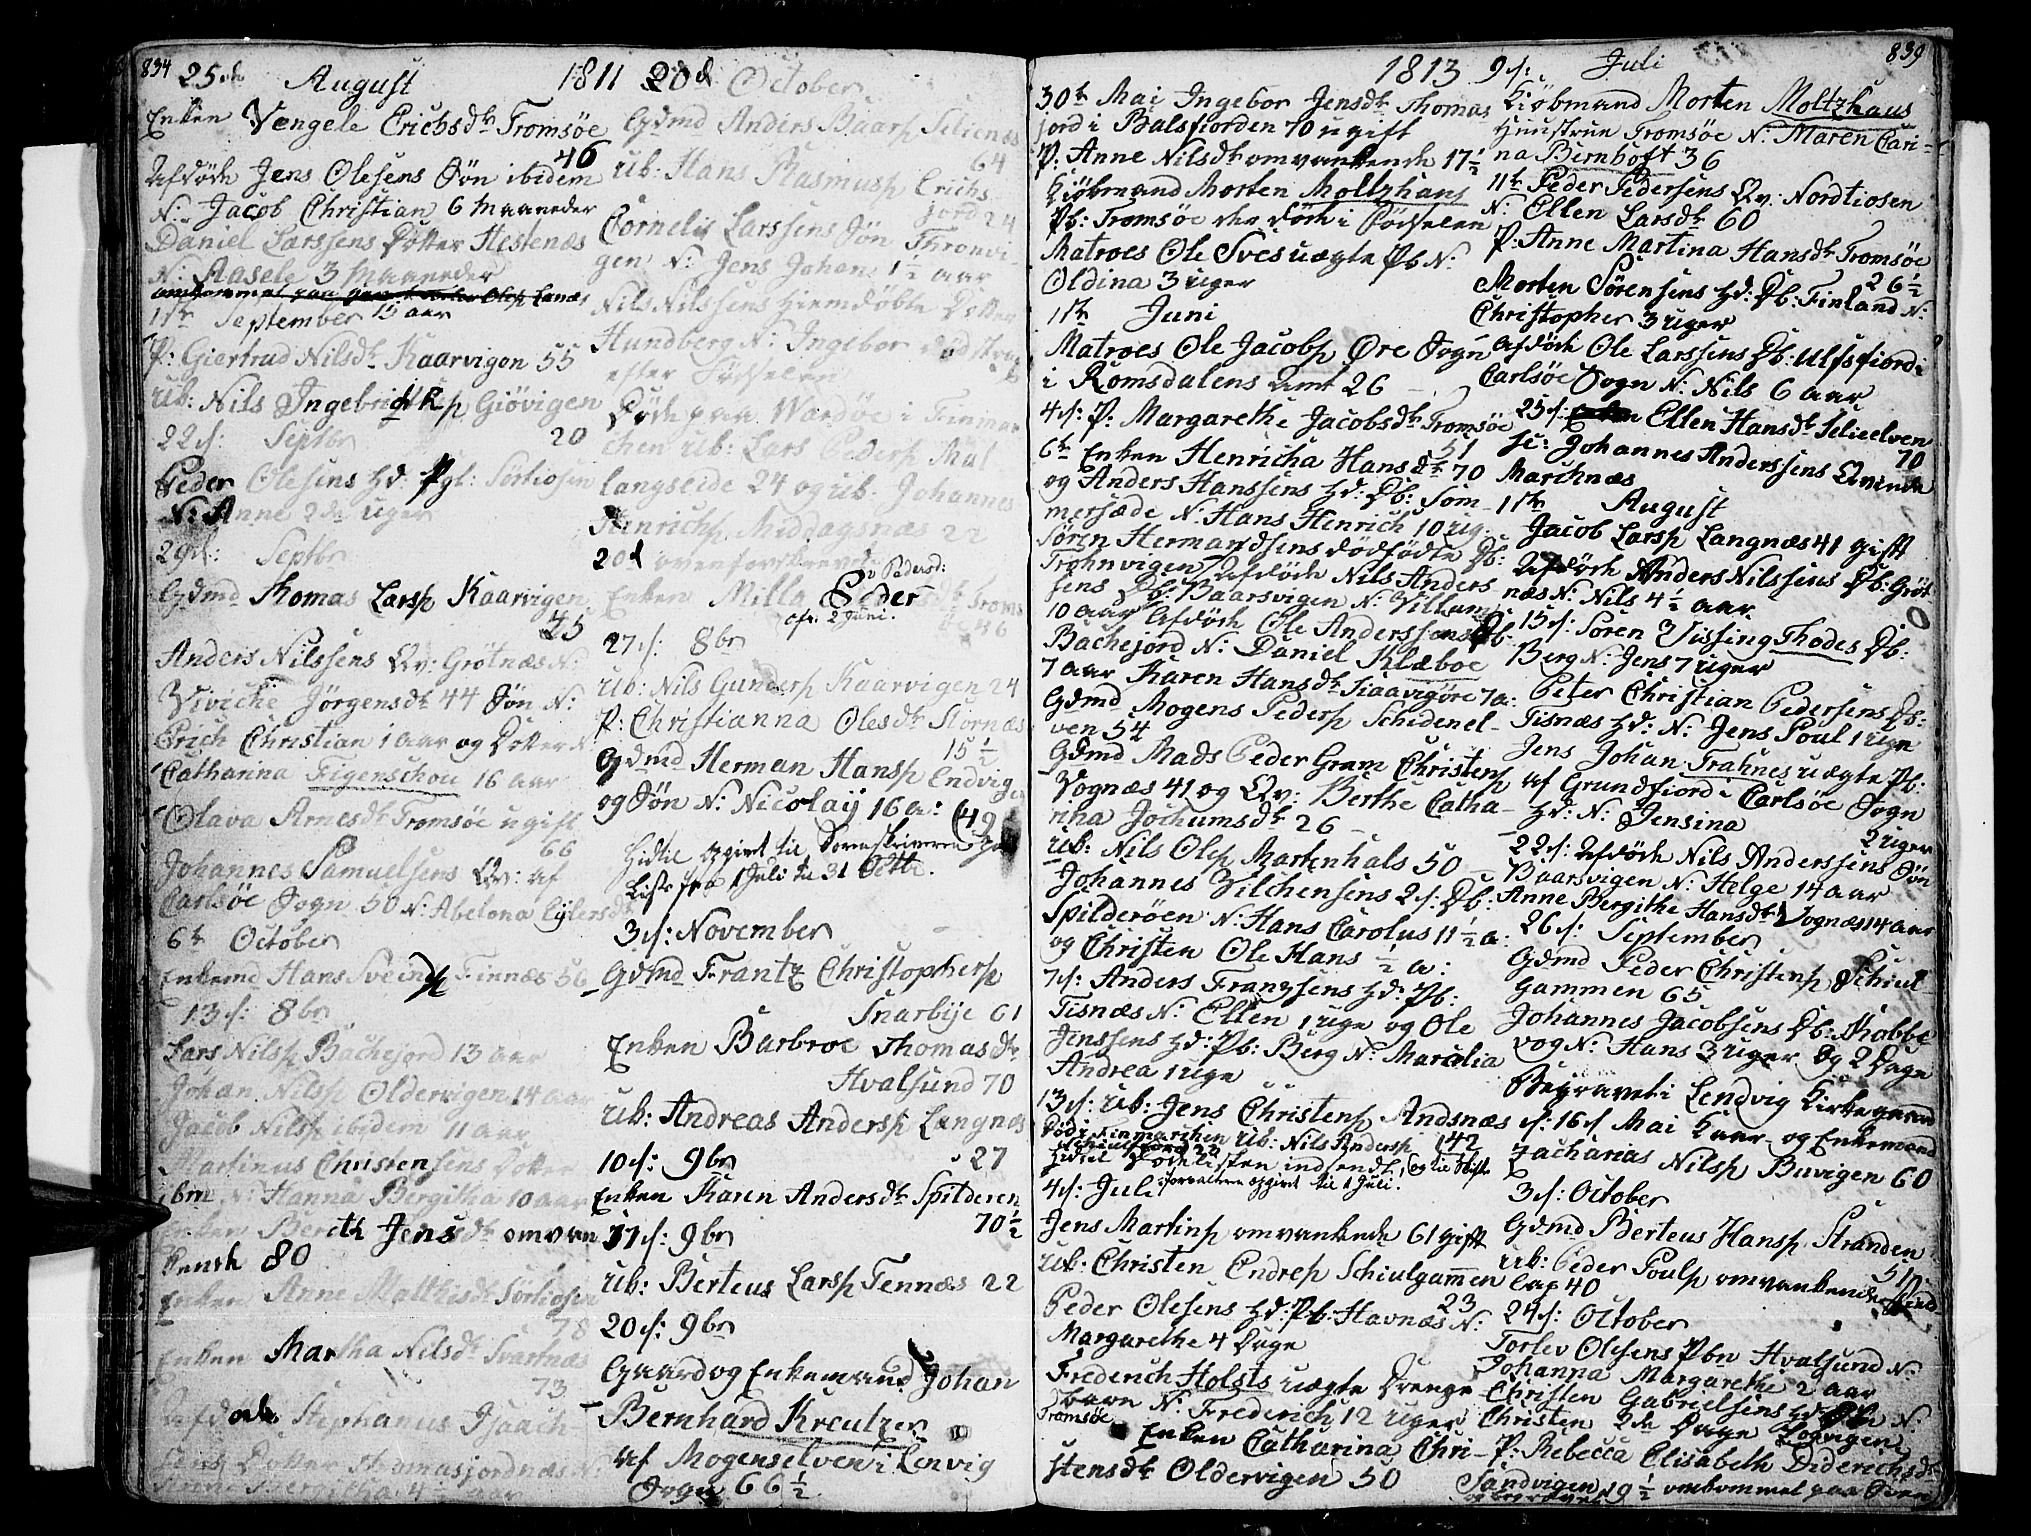 834
25de August 1811
Enken Vengele Erichsdr Tromsøe
46
Afdøde Jens Olesens Søn ibidem
N: Jacob Christian 6 Maaneder
Daniel Larssens Dotter Hestenæs
N: Aasele 3 Maaneder
Olsp Lanæs
11te September 15 aar
P: Giertrud Nilsdr Kaarvigen 55
Ub: Nils Ingebrichtsp Giøvigen
20
22d: Septbr
Peder Olesens hd: Pgb: Sørtiosen
N: Anne 2de uger
29d: Septbr
Gdmd Thomas Larsp Kaarvigen
75
Anders Nilssens Qv: Grøtnæs N:
Viviche Jørgensdr 44 Søn N:
Erich Christian 1 aar og Dotter N:
Catharina Figenschou 16 aar
Olava Arnesdr Tromsøe ugift
66
Johannes Samuelsens Qv: af
Carlsøe Sogn 50 N: Abelona Eylersdr
6te October
Enkemd Hans Svends Finnæs 56
13d: 8br
Lars Nilsp Bachejord 13 aar
Johan Nilsp Oldervigen 14 aar
Jacob Nilsp ibidem 11 aar
Martinus Christensens Dotter
ibm N: Hanna Bergitha 10 aar
Enken Bereth Jensdr omvan
kende 80
Enken Anne Matthisdr Sørtiosen
78
Enken Martha Nilsdr Svartnæs
73
Afdøde Stephanus Isaach-
sens Dotter Thomasjordnæs N:
20d October
Gdmd Anders Baarsp Selienæs
64
Ub: Hans Rasmusp Erichs
jord 24
Cornelis Larssens Søn Thronvi-
gen N: Jens Johan 1½ aar
Nils Nilssens hiemdøbte Dotter
Hundberg N: Ingebor død strax
efter Fødselen
Døde paa Wardøe i Finmar
chen Ub: Lars Pedersp Mal
langseide 24 og ub. Johannes
Henrichsp Middagsnæs 22
20d ovenforskrevne
Enken Milla Peder Tromsøe 46
27d: 8br
Ub: Nils Gundersp Kaarvigen 24
P: Christianna Olesdr Stornæs
15½
Gdmd Herman Hansp Lendvig
og Søn N: Nicolaij 16 a: 49
Hidtil opgivet til Sorenskriveren
Liste fra 1 Juli til 31 Octbr.
3d: November
Gdmd Frantz Christophersp
Snarbye 61
Enken Barbroe Thomasdr
Hvalsund 70
Ub: Andreas Andersp Langnæs
10d: 9br 27
Enken Karen Andersdr Spilderen
70½
17d: 9br
Ub: Berteus Larsp Tennæs 22
20d: 9br
Gaard og Enkemand Johan
Bernhard Kreutzer
af Mogenselven i Lenvig
Sogn 66½
1813
30te Mai Ingebor Jensdr Thomas
jord i Balsfiorden 70 ugift
P: Anne Nilsdr omvankende 17½
Kiøbmand Morten Moltzhaus
Pb: Tromsøe der døde i Fødselen
Matroes Ole Sves uægte Pb N:
Oldina 3 uger
11te Juni
Matroes Ole Jacobsp Øre Sogn
i Romsdalens Amt 26
4d: P: Margarethe Jacobsdr Tromsøe
51
6te Enken Henricha Hansdr 70
og Anders Hanssens hd: Db: Som-
mersæde N: Hans Henrich 10 ug.
Søren Hermandsens dødfødte Db:
Trohnvigen Afdøde Nils Anders
sens Db: Baarsvigen N: Villum
10 aar Afdøde Ole Anderssens Db.
Bachejord N: Daniel Klæboe
7 aar Karen Hansdr Skaavigøre 7 a:
Gdmd Mogens Pedersp Schidenel-
ven 54
Gdmd Mads Peder Gram Christensp
Vognæs 41 og Qv: Berthe Catha-
rina Jochumsdr 26
Ub: Nils Olsp Martenhals 50
Johannes Vilchensens 2d: Db:
Spilderøen N: Hans Carolus 11½ a:
og Christen Ole Hans ½ a:
7d: Anders Franssens hd: Pb:
Tisnæs N: Ellen 1 uge og Ole
Jenssens hd: Pb: Berg N: Marcelia
Andrea 1 uge
13d: Ub: Jens Christensp Andsnæs
42
Død i Finmarchen ub: Nils Andersp
4d: Juli
Jens Martinsp omvankende 61 gift
Ub: Christen Endresp Schiulgammen
23
Peder Olesens hd: Pb: Havnæs N:
Margarethe 4 Dage
Frederich Holsts uægte Drenge-
barn N: Frederich 12 uger
Tromsøe
Enken Catharina Chri-
stensdr Oldervigen 50
839
9d: Juli
Kiøbmand Morten Moltzhaus
Huustrue Tromsøe N: Maren Cari-
na Bernhoft 36
11te Peder Pedersens Qv: Nordtiosen
N: Ellen Larsdr 60
P: Anne Martina Hansdr Tromsøe
26½
Morten Sørensens hd: Db: Finland N:
Christopher 3 uger
Afdøde Ole Larssens Db: Ulfsfiord i
Carlsøe Sogn N: Nils 6 aar
25d: Ellen Hansdr Selieelven
70
Johannes Anderssens Qvinde
Marchnæs
11te August
Jacob Larsp Langnæs 41 gift
Afdøde Anders Nilssens Db: Grøt
næs N: Nils 4½ aar
15d: Soren Vissing Thodes Db:
Berg N: Jens 7 uger
Peter Christian Pedersens Db:
Tisnæs hd: N: Jens Poul 1 uge
Jens Johan Frahnes uægte Pb:
af Grundfiord i Carlsøe Sogn
hd: N: Jensina
2 uger
22d: Afdøde Nils Anderssens Søn
Baarsvigen N: Helge 14 aar
Anne Bergithe Hansdr Vognæs 14 aar
26d: September
Gdmd Peder Christensp Schiul-
gammen 65
Johannes Jacobsens Db: Kobbe
vog N: Hans 3 uger og 2 Dage
Begravet i Lendvig Kirkegaard
d: 16d Mai Gaar- og Enkemand
Zacharias Nilsp Buvigen 60
3d: October
Gdmd Berteus Hansp Stranden
51
Ub: Peder Poulsp omvankende Find
Lap 40
24d: October
Torlev Olesens Pbn Hvalsund N:
Johanna Margarethe 2 aar
Christen Gabrielsens hd: N:
Christen 3de Dage
P: Rebecca Elisabeth Diderichsdr
Sandvigen 19½ omkommet paa Søen